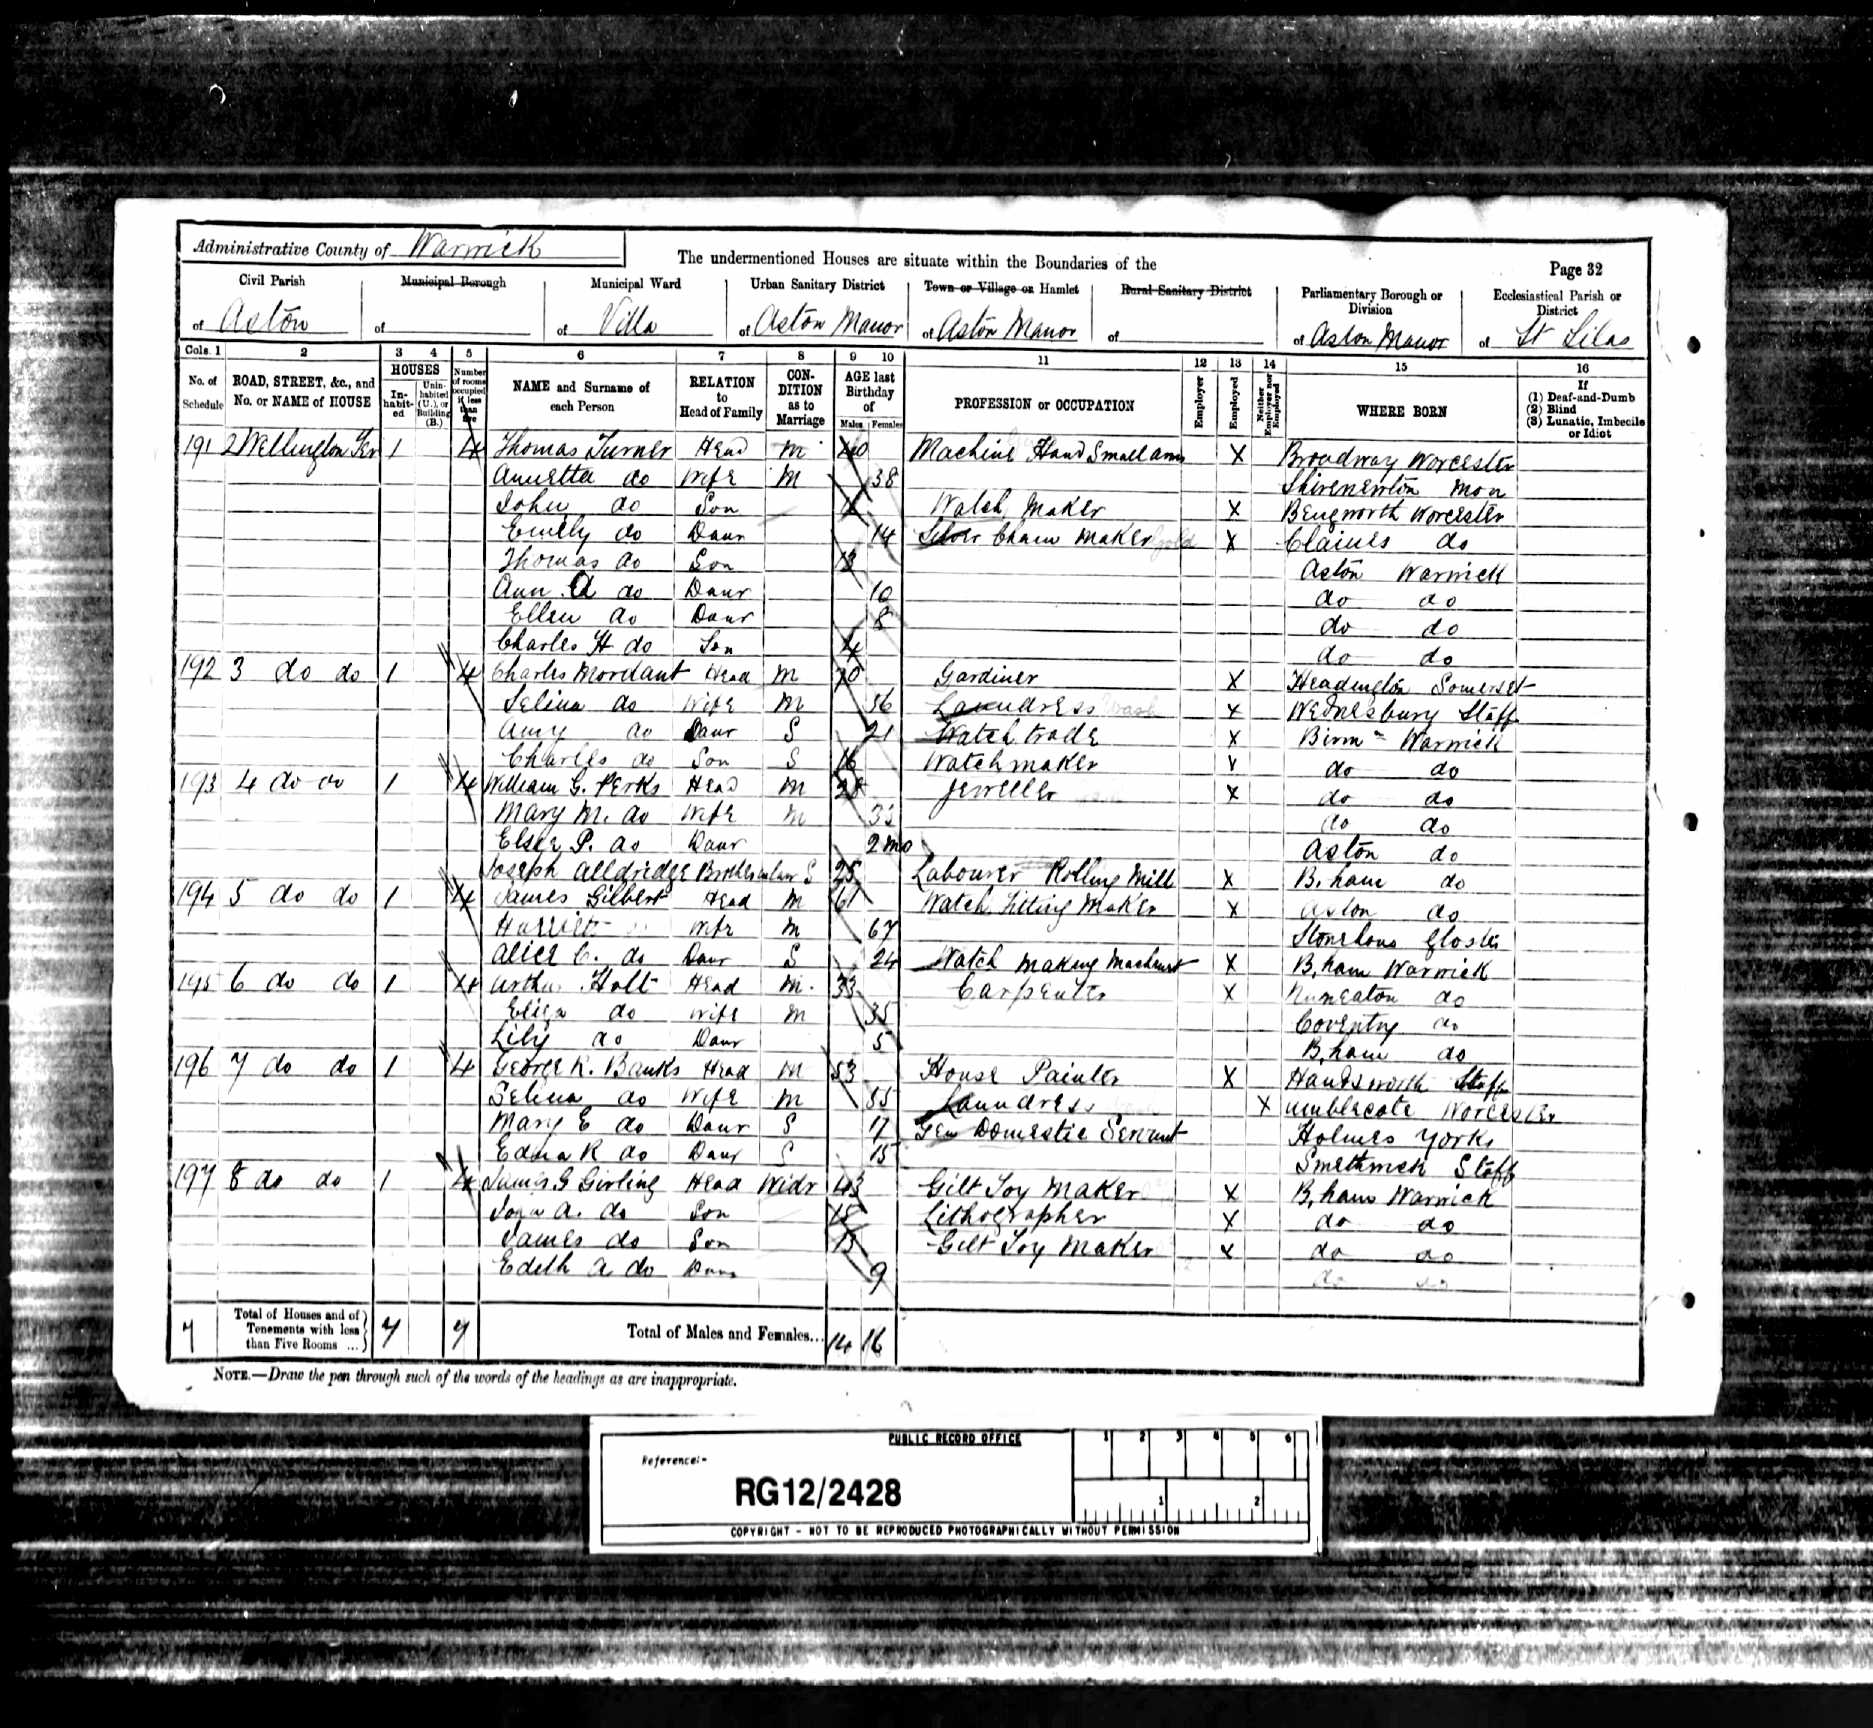 Administrative County of Warwick
The undermentioned Houses are situate within the Boundaries of the
Page 32
Civil Parish of Aston
Municipal Borough of
Municipal Ward of Villa
Urban Sanitary District of Aston Manor
Town or Village or Hamlet of Aston Manor
Rural Sanitary District of
Parliamentary Borough or Division of Aston Manor
Ecclesiastical Parish or District of St Silas
Cols. 1 2 3 4 5 6 7 8 9 10 11 12 13 14 15 16
No. of Schedule
ROAD, STREET, &c., and No. or NAME of HOUSE
HOUSES
In-habit-ed
Unin-habited (U.), or Building (B.)
Number of rooms occupied if less than five
NAME and Surname of each Person
RELATION to Head of Family
CON-DITION as to Marriage
AGE last Birthday of
Males Females
PROFESSION or OCCUPATION
Employer
Employed
Neither Employer nor Employed
WHERE BORN
If
(1) Deaf-and-Dumb
(2) Blind
(3) Lunatic, Imbecile or Idiot
191 2 Wellington Ter 1 4 Thomas Turner Head M 40 Machine Hand Small arms X Broadway Worcester
Annetta do Wife M 38 Shirenewton Mon
John do Son Watch Maker X Bengworth Worcester
Emily do Daur 14 Silver Chain Maker gold X Claines do
Thomas do Son 13 Aston Warwick
Ann A do Daur 10 do do
Ellen do Daur 8 do do
Charles H do Son 4 do do
192 3 do do 1 4 Charles Mordaunt Head M 70 Gardiner X Headington Somerset
Selina do Wife M 56 Laundress Wash X Wednesbury Staff
Amy do Daur S 21 Watch trade X Birm Warwick
Charles do Son S 16 Watchmaker X do do
193 4 do do 1 4 William G. Perks Head M 28 Jeweller X do do
Mary M. do Wife M do do
Elsie P. do Daur 2 mo Aston do
Joseph Alldridge Brother in law S 25 Labourer Rolling Mill X B.ham do
194 5 do do 1 4 James Gilbert Head M 61 Watch Fitting Maker X Aston do
Harriett Wife M 67 Stonehous Gloster
Alice C. do Daur S 24 Watch Making Machinist X B.ham Warwick
195 6 do do 1 4 Arthur Holt Head M. 33 Carpenter X Nuneaton do
Eliza do Wife M 35 Coventry do
Lily do Daur 5 B.ham do
196 7 do do 1 4 George R. Banks Head M 53 House Painter X Handsworth Staff
Selina do Wife M 55 Laundress X Amblecote Worcester
Mary E do Daur S 17 Gen Domestic Servant Holmes Yorks
Edna R do Daur S 15 Smethwick Staff
197 8 do do 1 4 James G Girling Head Widr 43 Gilt Toy Maker X B.ham Warwick
A. do Son 18 Lithographer X do do
James do Son 13 Gilt Toy Maker X do do
Edith A do Daur 9 do do
7 Total of Houses and of Tenements with less than Five Rooms ... 7 7 Total of Males and Females... 14 16
NOTE.—Draw the pen through such of the words of the headings as are inappropriate.
PUBLIC RECORD OFFICE
1 2 3 4 5 6
Reference:-
RG12/2428
1 2
COPYRIGHT - NOT TO BE REPRODUCED PHOTOGRAPHICALLY WITHOUT PERMISSION